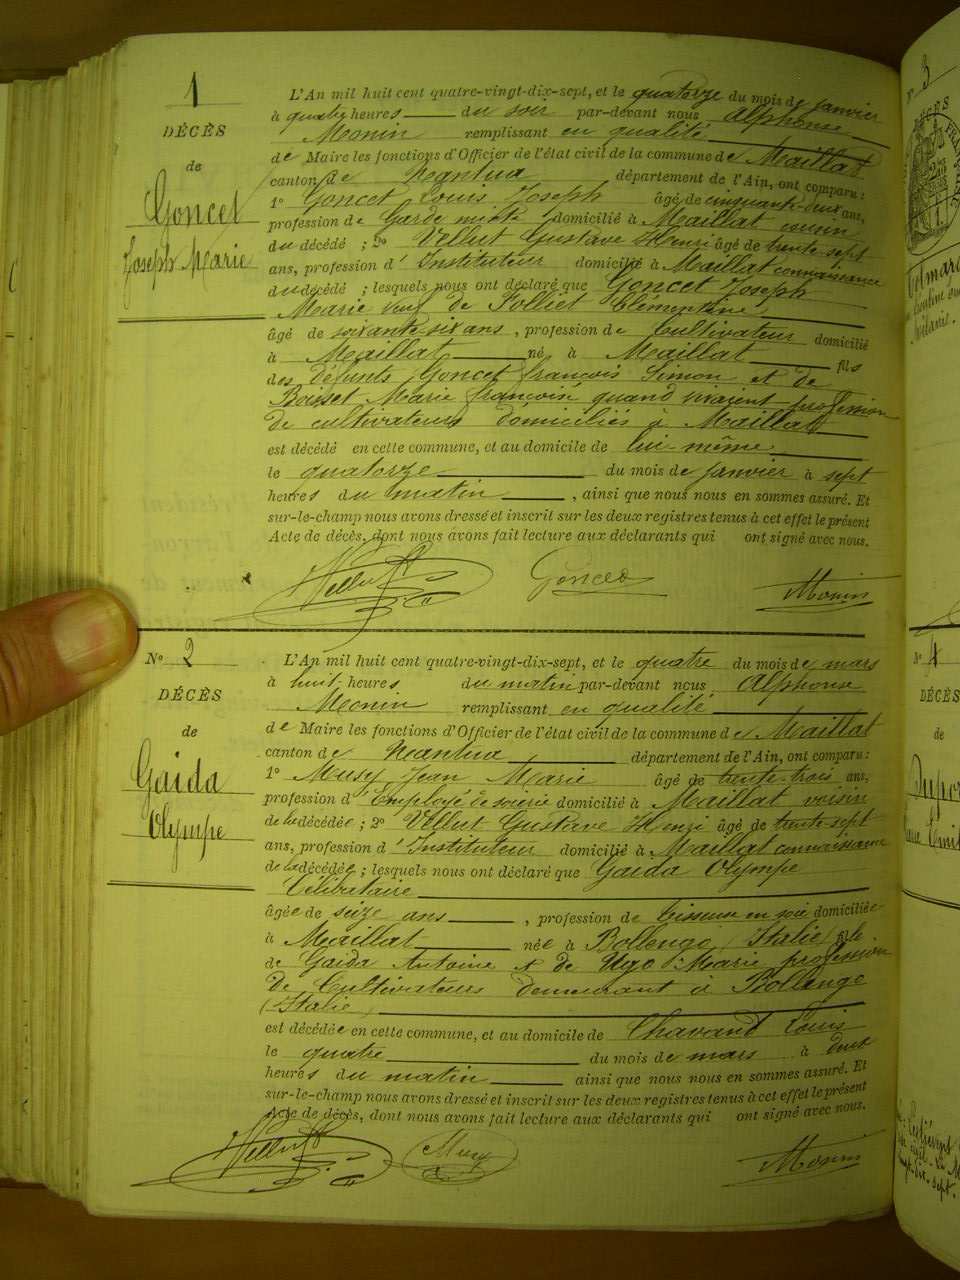 1
DÉCÈS
de
Goncet
Joseph Marie
L'An mil huit cent quatre-vingt-dix-sept, et le quatorze du mois de janvier
à quatre heures du soir par-devant nous Alphonse
Monin remplissant en qualité
de Maire les fonctions d'Officier de l'état civil de la commune de Maillat
canton de Nantua département de l'Ain, ont comparu :
1° Goncet Louis Joseph âgé de cinquante-deux ans,
profession de Garde mixte domicilié à Maillat cousin
du décédé ; 2° Vellut Gustave Henri âgé de trente-sept
ans, profession d'Instituteur domicilié à Maillat connaissance
du décédé ; lesquels nous ont déclaré que Goncet Joseph
Marie veuf de Folliet Clémentine
âgé de soixante-six ans, profession de Cultivateur domicilié
à Maillat né à Maillat fils
des défunts Goncet françois Simon et de
Marie françoise quand vivaient profession
de cultivateurs domiciliés à Maillat
est décédé en cette commune, et au domicile de lui-même
le quatorze du mois de janvier à sept
heures du matin, ainsi que nous nous en sommes assuré. Et
sur-le-champ nous avons dressé et inscrit sur les deux registres tenus à cet effet le présent
Acte de décès, dont nous avons fait lecture aux déclarants qui ont signé avec nous.
Vellut Goncet Monin
N° 2
DÉCÈS
de
Gaida
Olympe
L'An mil huit cent quatre-vingt-dix-sept, et le quatre du mois de mars
à huit heures du matin par-devant nous Alphonse
Monin remplissant en qualité
de Maire les fonctions d'Officier de l'état civil de la commune de Maillat
canton de Nantua département de l'Ain, ont comparu :
1° Musy Jean Marie âgé de trente-trois ans,
profession d'Employé de soierie domicilié à Maillat voisin
de la décédée ; 2° Vellut Gustave Henri âgé de trente-sept
ans, profession d'Instituteur domicilié à Maillat connaissance
de la décédée ; lesquels nous ont déclaré que Gaida Olympe
Célibataire
âgée de seize ans, profession de tisseuse en soie domiciliée
à Maillat née à Bollengo (Italie) fille
de Gaida Antoine et de Ugo Marie profession
de Cultivateurs demeurant à Bollengo
(Italie)
est décédée en cette commune, et au domicile de Chavand Louis
le quatre du mois de mars à
heures du matin ainsi que nous nous en sommes assuré. Et
sur-le-champ nous avons dressé et inscrit sur les deux registres tenus à cet effet le présent
Acte de décès, dont nous avons fait lecture aux déclarants qui ont signé avec nous.
Vellut Musy Monin
N° 3
N° 4
DÉCÈS
de